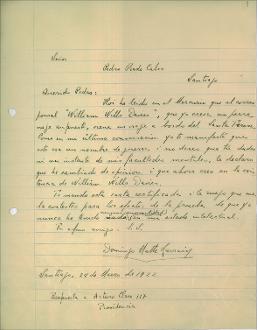 Señor
Pedro Prado Calvo
Santiago
Querido Pedro:
Hoy he leído en el Mercurio que el corres
ponsal "William Wills Davies", que yo creía un perso
naje inexistente, viene en viaje a bordo del Santa Teresa.
Como en mi última te manifesté que
este era un nombre de guerra, i me dices que tú dudas
ni un instante de mis facultades mentales, te declaro
que he cambiado de opinión, i que ahora creo en la exis
tencia de William Wills Davies.
Te mando esta carta certificada i te ruego que me
la contestes para los efectos de la prueba de que yo
nunca he tenido mi estado intelectual.
Tu afmo amigo. S.S.
Domingo Matte Larraín
Santiago, 24 de Marzo de 1922
Respuesta a Arturo 117
Providencia